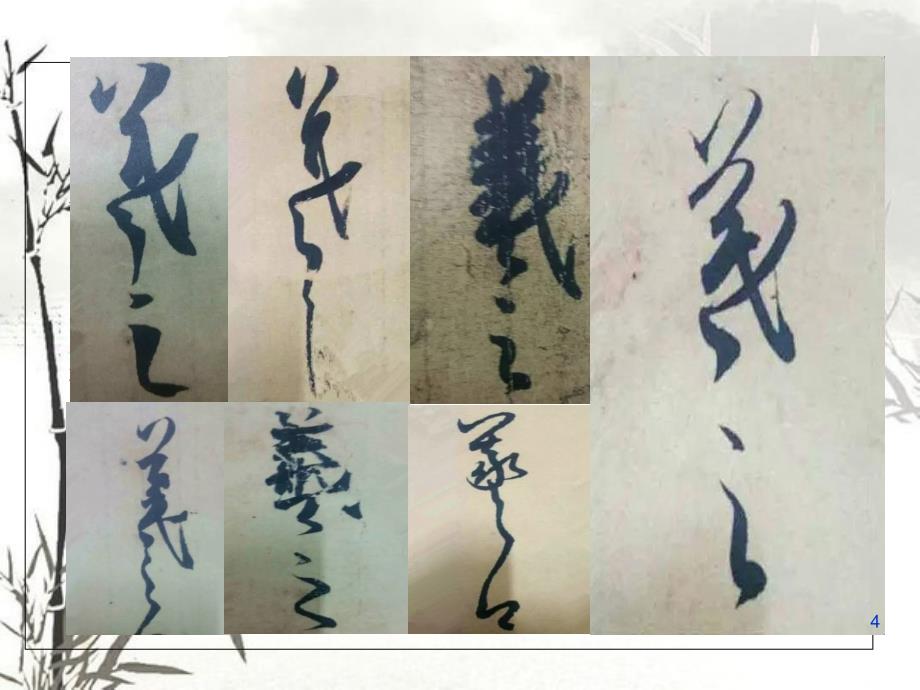 羲之
羲之
羲之
羲之
羲之
羲之
羲之
4